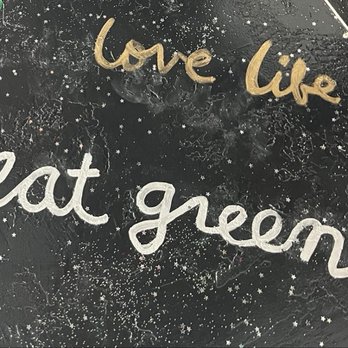 love life
eat green